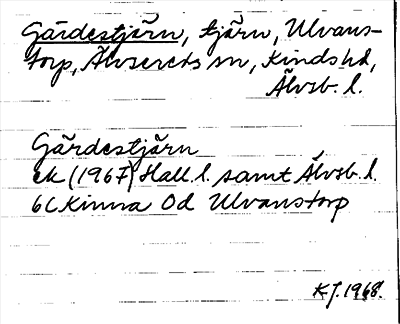 Gärdestjärn, tjärn, Ulvans-
torp, Älvsereds sn, Kinds hd,
Älvsb. l.
Gärdestjärn
ek (1967) Hall. l. samt Älvsb. l.
6C Kinna 0d Ulvanstorp
KJ. 1968.